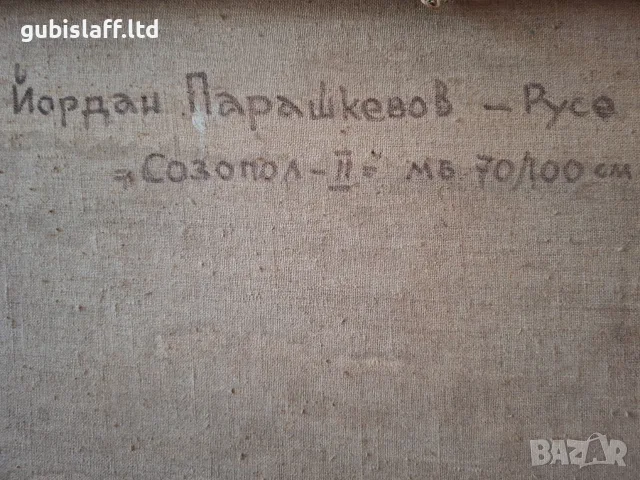 gubislaff.ltd
Йордан Парашкевов – Русе
"Созопол – II" мб 70/100 см
BAZAR